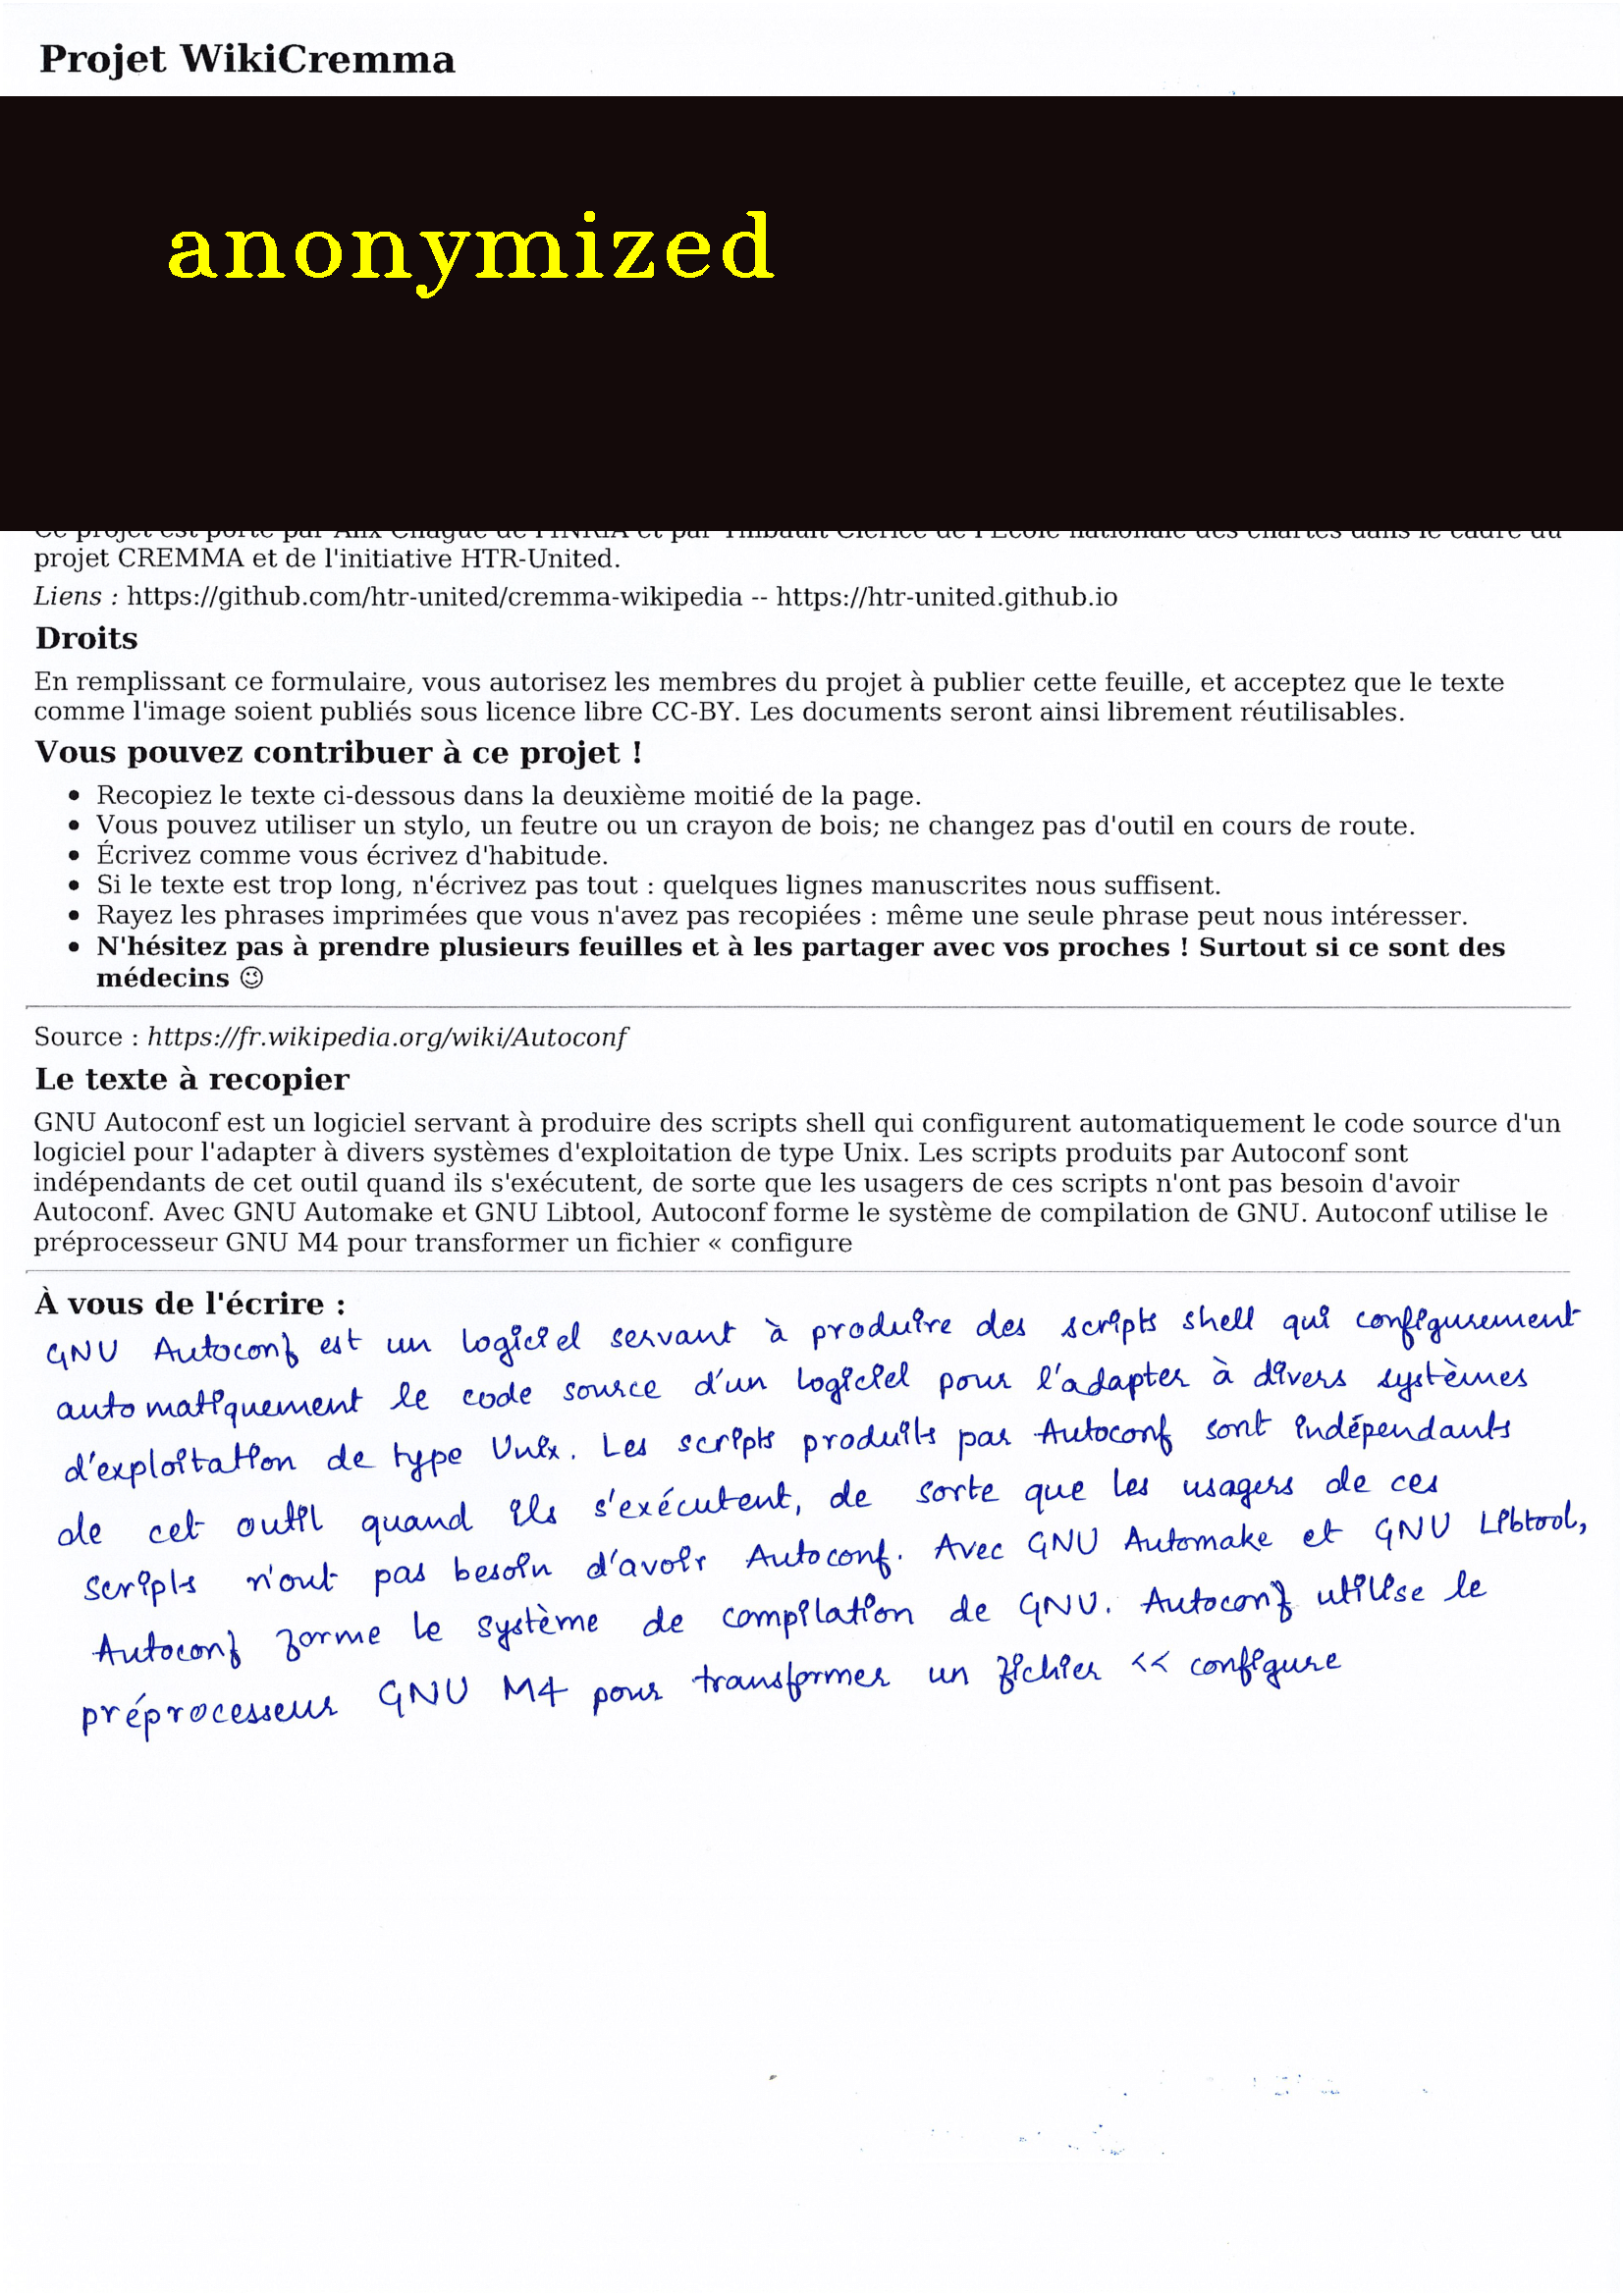 Projet WikiCremma
anonymized
Ce projet est porté par Alix Chagué de l'INRIA et par Thibault Clérice de l'École nationale des chartes dans le cadre du
projet CREMMA et de l'initiative HTR-United.
Liens : https://github.com/htr-united/cremma-wikipedia -- https://htr-united.github.io
Droits
En remplissant ce formulaire, vous autorisez les membres du projet à publier cette feuille, et acceptez que le texte
comme l'image soient publiés sous licence libre CC-BY. Les documents seront ainsi librement réutilisables.
Vous pouvez contribuer à ce projet !
• Recopiez le texte ci-dessous dans la deuxième moitié de la page.
• Vous pouvez utiliser un stylo, un feutre ou un crayon de bois; ne changez pas d'outil en cours de route.
• Écrivez comme vous écrivez d'habitude.
• Si le texte est trop long, n'écrivez pas tout : quelques lignes manuscrites nous suffisent.
• Rayez les phrases imprimées que vous n'avez pas recopiées : même une seule phrase peut nous intéresser.
• N'hésitez pas à prendre plusieurs feuilles et à les partager avec vos proches ! Surtout si ce sont des
médecins ☺
Source : https://fr.wikipedia.org/wiki/Autoconf
Le texte à recopier
GNU Autoconf est un logiciel servant à produire des scripts shell qui configurent automatiquement le code source d'un
logiciel pour l'adapter à divers systèmes d'exploitation de type Unix. Les scripts produits par Autoconf sont
indépendants de cet outil quand ils s'exécutent, de sorte que les usagers de ces scripts n'ont pas besoin d'avoir
Autoconf. Avec GNU Automake et GNU Libtool, Autoconf forme le système de compilation de GNU. Autoconf utilise le
préprocesseur GNU M4 pour transformer un fichier « configure
À vous de l'écrire :
GNU Autoconf est un logiciel servant à produire des scripts shell qui configurement
automatiquement le code source d'un logiciel pour l'adapter à divers systèmes
d'exploitation de type Unix. Les scripts produits par Autoconf sont indépendants
de cet outil quand ils s'exécutent, de sorte que les usagers de ces
scripts n'ont pas besoin d'avoir Autoconf. Avec GNU Automake et GNU Libtool,
Autoconf forme le système de compilation de GNU. Autoconf utilise le
préprocesseur GNU M4 pour transformer un fichier << configure